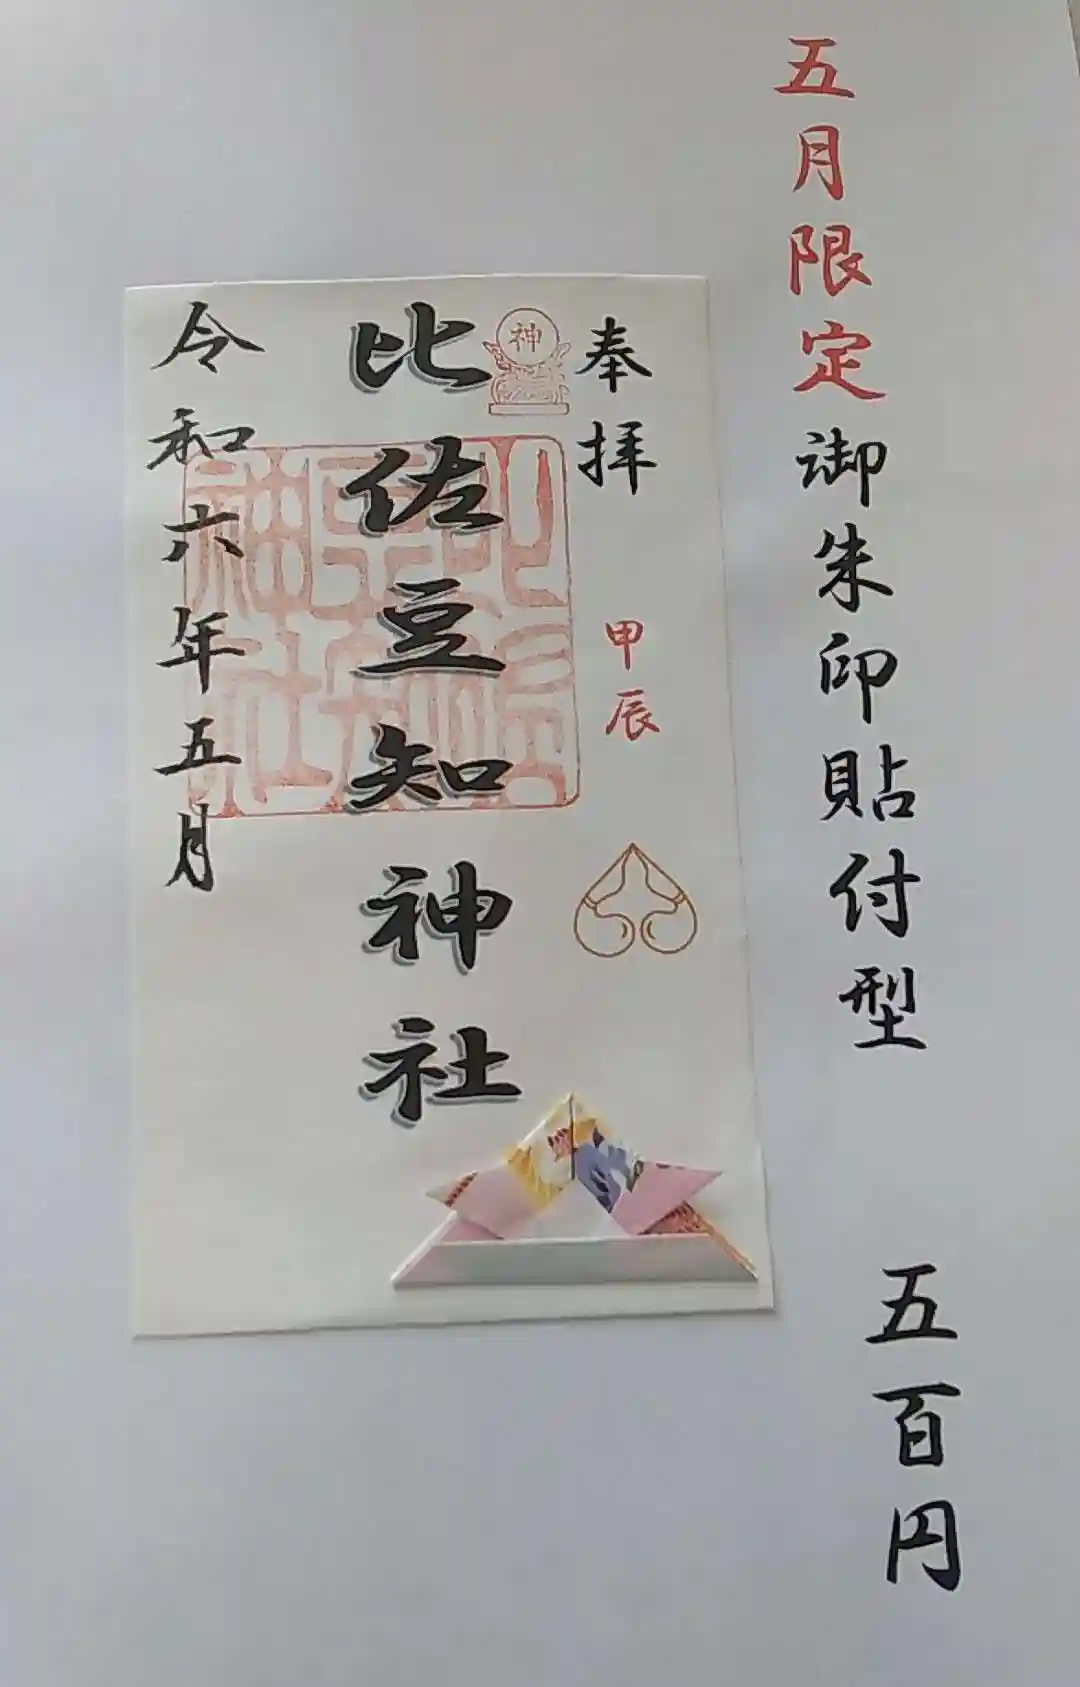 五月限定御朱印貼付型 五百円
奉拝
甲辰
神
比佐豆知神社
令和六年五月